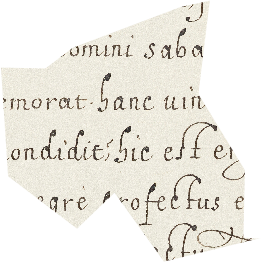 omini saba
emorat· hanc uin
ondidit; hic est
egre profectus e